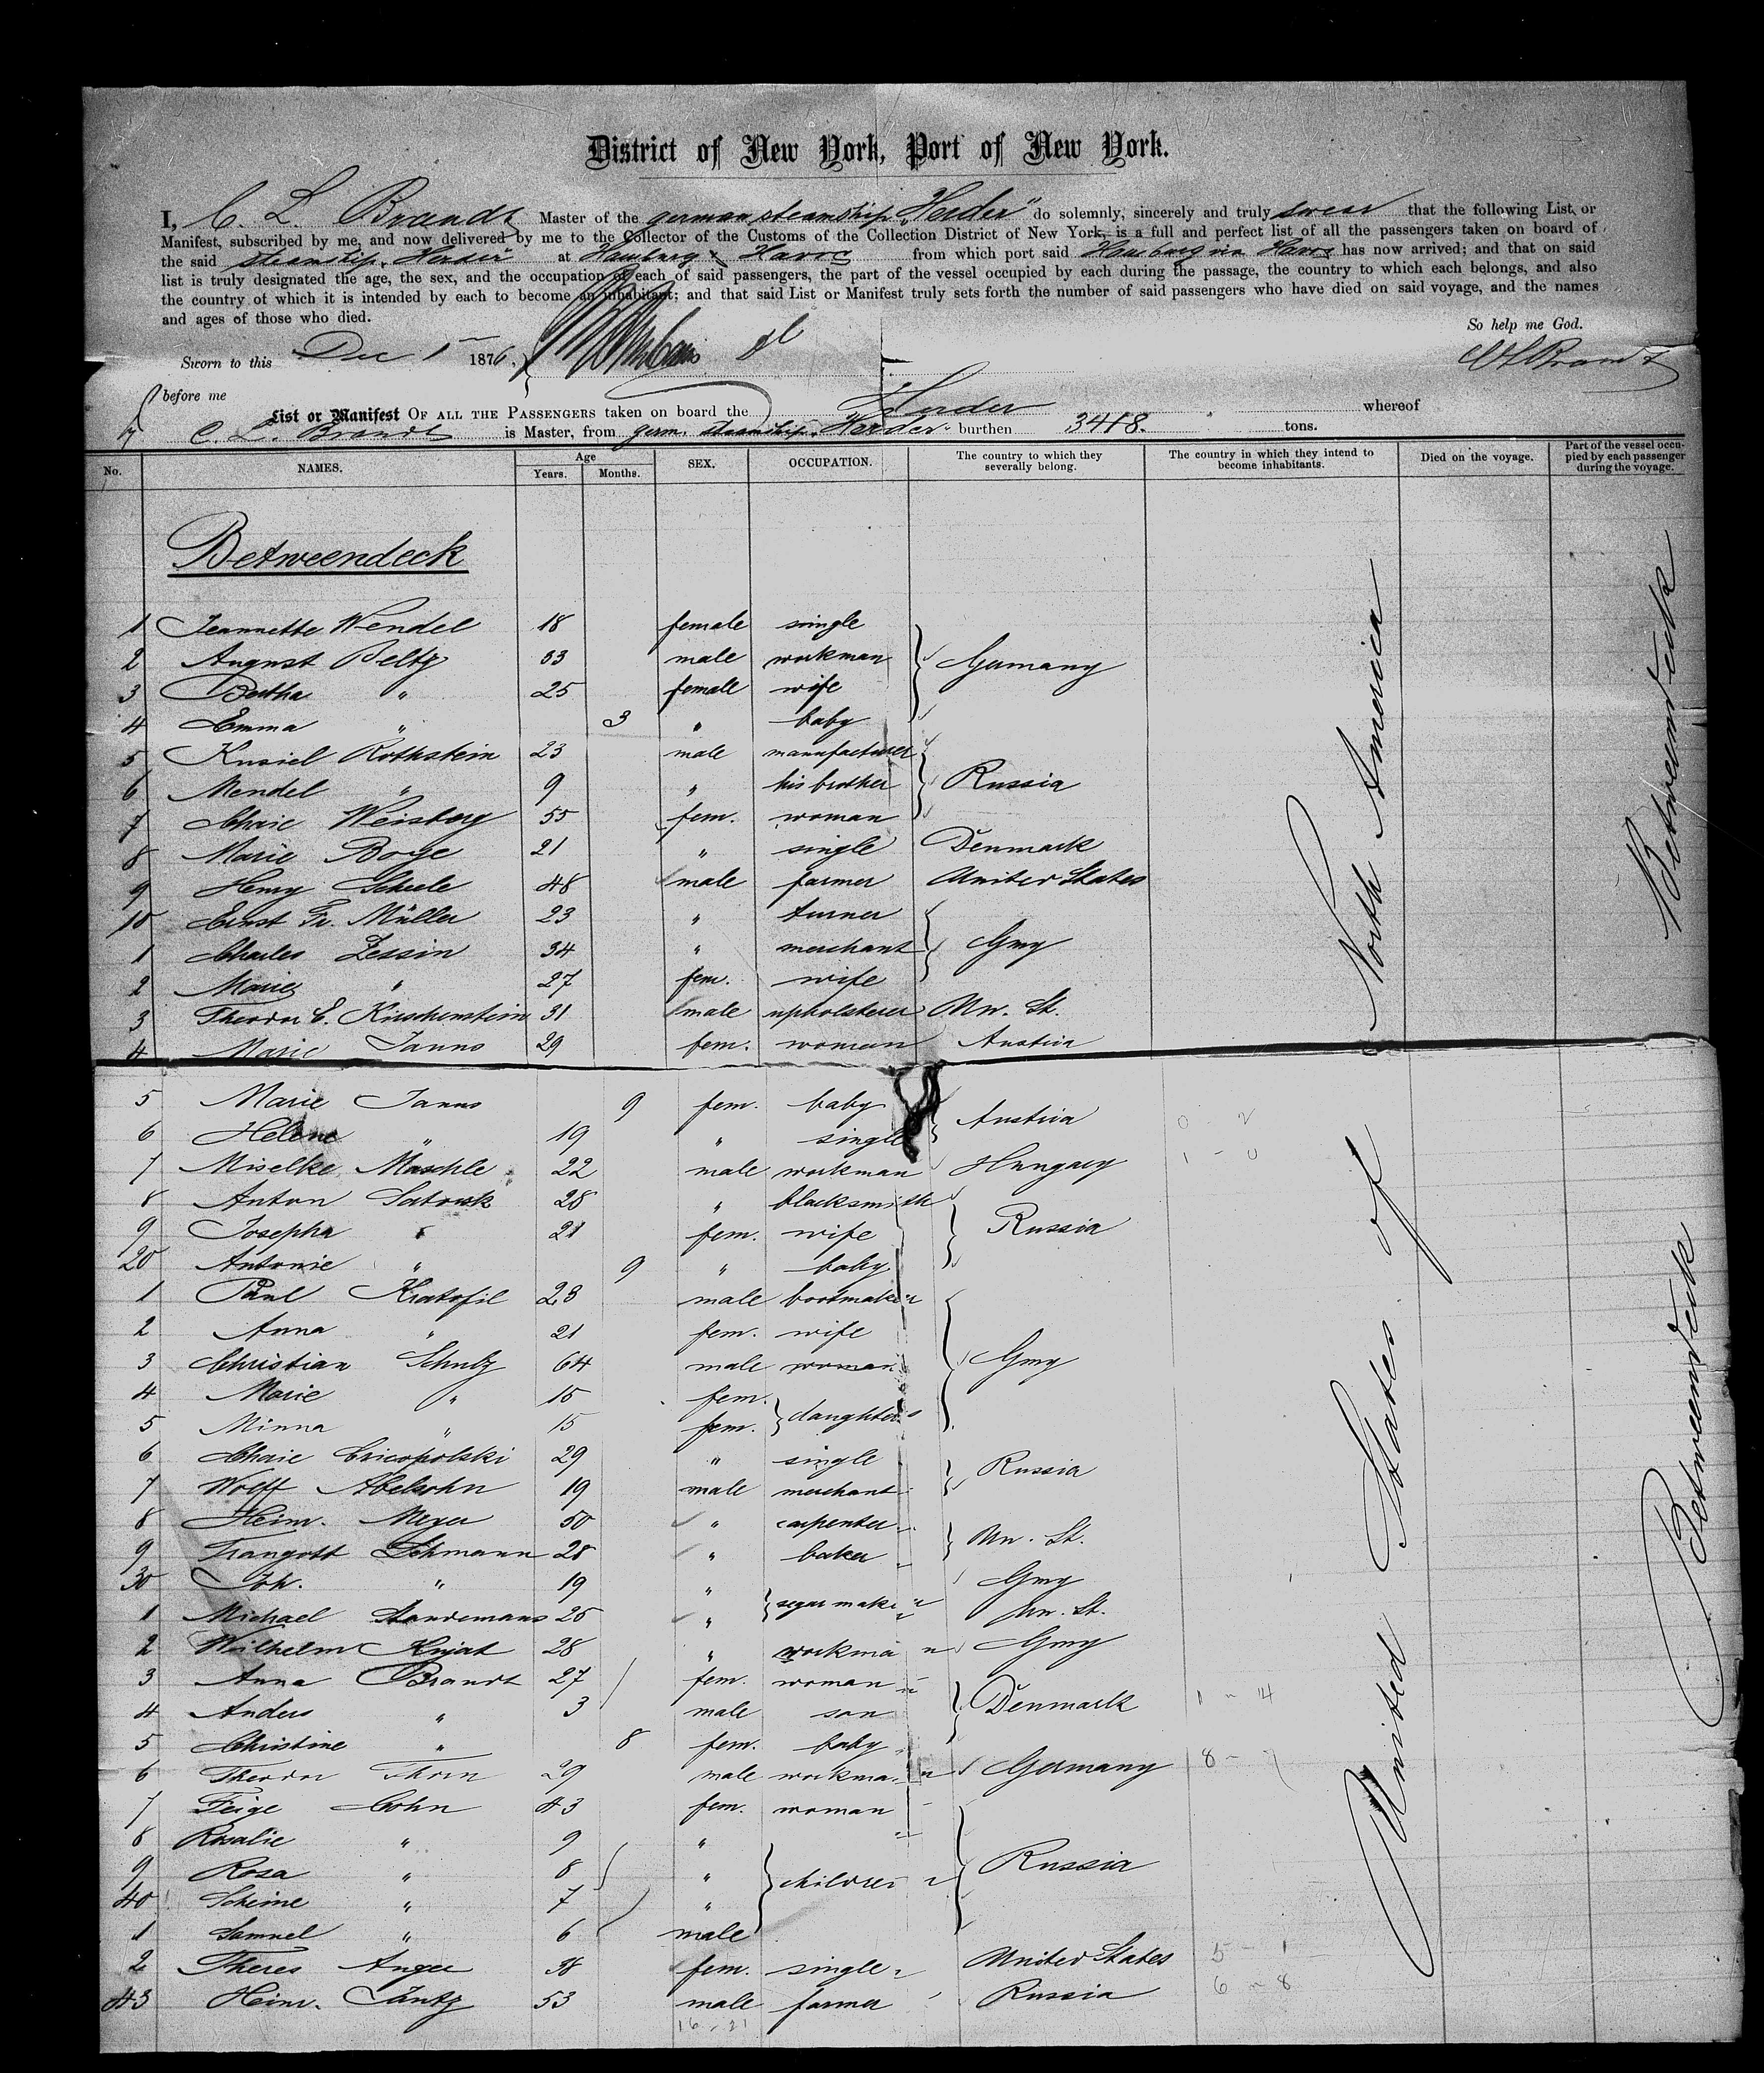 District of New York, Port of New York.
I, C. L. Brandt Master of the german steamship "Herder" do solemnly, sincerely and truly swear that the following List or
Manifest, subscribed by me, and now delivered by me to the Collector of the Customs of the Collection District of New York, is a full and perfect list of all the passengers taken on board of
the said steamship Herder at Hamburg & Havre from which port said Hamburg via Havre has now arrived; and that on said
list is truly designated the age, the sex, and the occupation of each of said passengers, the part of the vessel occupied by each during the passage, the country to which each belongs, and also
the country of which it is intended by each to become an inhabitant; and that said List or Manifest truly sets forth the number of said passengers who have died on said voyage, and the names
and ages of those who died.
So help me God.
Sworn to this Dec 1 1876. C L Brandt
before me
List or Manifest OF ALL THE PASSENGERS taken on board the Herder whereof
C. L. Brandt is Master, from germ. steamship "Herder" burthen 3418. tons.
No. NAMES. Age Years. Months. SEX. OCCUPATION. The country to which they severally belong. The country in which they intend to become inhabitants. Died on the voyage. Part of the vessel occupied by each passenger during the voyage.
Betweendeck
1 Jeannette Wendel 18 female single
2 August Beltz 33 male workman Germany
3 Bertha " 25 female wife
4 Emma " 3 " baby
5 Kusiel Rothstein 23 male manufacturer
6 Mendel " 9 " his brother Russia
7 Chaie Weisberg 55 fem. woman
8 Marie Boye 21 " single Denmark
9 Henry Scheele 48 male farmer United States
10 Ernst Fr. Müller 23 " turner
1 Charles Zessin 34 " merchant Gmy
2 Marie " 27 fem. wife
3 Theodor C. Kirschenstein 31 male upholsterer Un. St.
4 Marie Janus 29 fem. woman Austria
5 Marie Janus 9 fem. baby Austria
6 Helene " 19 " single
7 Miselke Maschle 22 male workman Hungary
8 Anton 28 " blacksmith
9 Josepha " 21 fem. wife Russia
20 Antonie " 9 " baby
1 Paul Kratofil 23 male bootmaker
2 Anna " 21 fem. wife
3 Christian Schulz 64 male woman Gmy
4 Marie " 15 fem.
5 Minna " 15 fem. daughters
6 Chaie Cricopolski 29 " single Russia
7 Wolff Abelsohn 19 male merchant
8 Heinr. Meyer 50 " carpenter
9 Traugott Lehmann 28 " baker Un. St.
30 Joh. " 19 " Gmy
1 Michael 25 " segarmaker Un. St.
2 Wilhelm Knjat 28 " workman Gmy
3 Anna Brandt 27 fem. woman
4 Anders " 3 male son Denmark
5 Christine " 8 fem. baby
6 Theodor Thorn 29 male workman Germany
7 Feige Cohn 43 fem. woman
8 Rosalie " 9 "
9 Rosa " 8 " children Russia
40 Scheine " 7 "
1 Samuel " 6 male
2 Theres Anger 38 fem. single United States
43 Heinr. Jantz 53 male farmer Russia
16-21
United States of North America
Betweendeck
Betweendeck